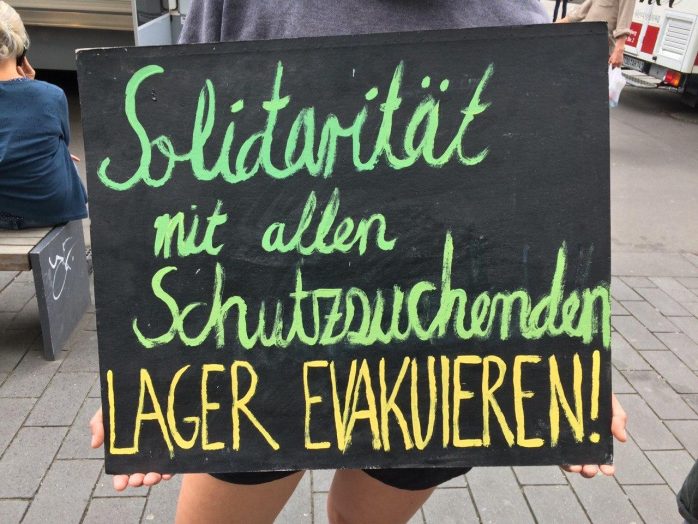 Solidarität
mit allen
Schutzsuchenden
LAGER EVAKUIEREN!